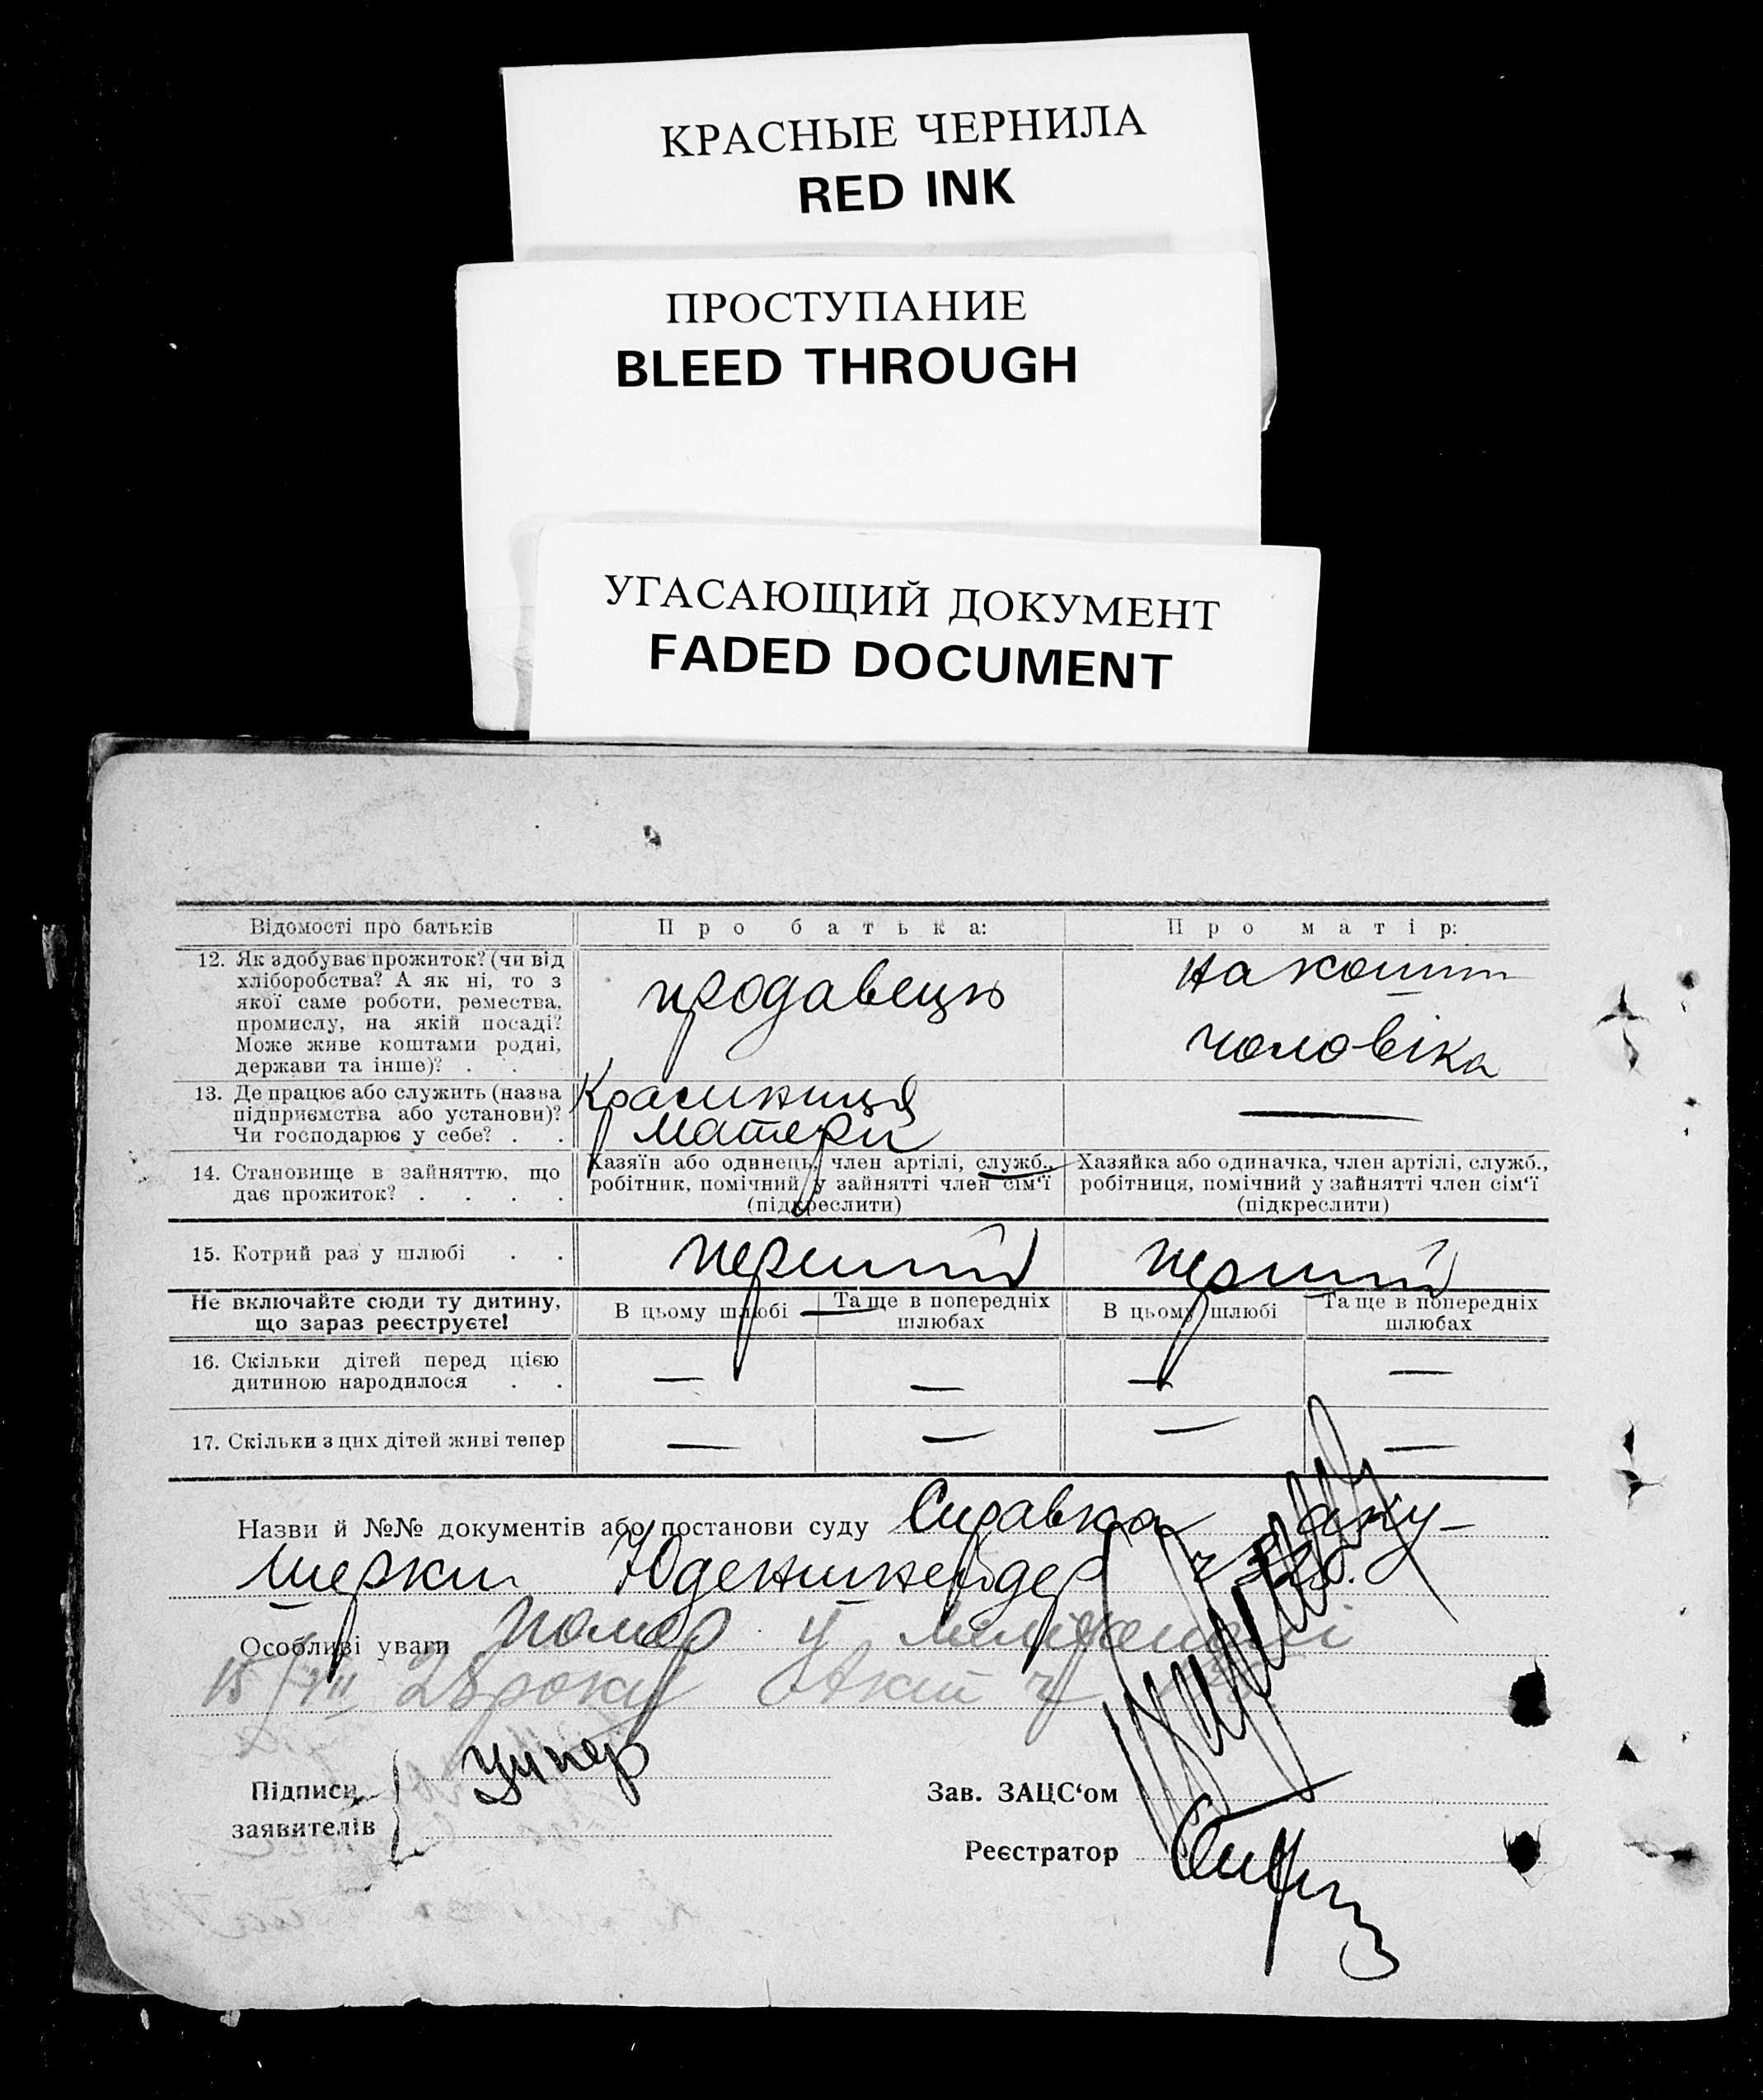 КРАСНЫЕ ЧЕРНИЛА
RED INK
ПРОСТУПАНИЕ
BLEED THROUGH
УГАСАЮЩИЙ ДОКУМЕНТ
FADED DOCUMENT
Відомості про батьків
Про батька:
Про матір:
12. Як здобуває прожиток? (чи від
хліборобства? А як ні, то з
якої саме роботи, ремества,
промислу, на якій посаді?
Може живе коштами родні,
держави та інше)? . .
продавець
на кошти
чоловіка
13. Де працює або служить (назва
підприємства або установи)?
Чи господарює у себе? . .
матери
—
14. Становище в зайняттю, що
дає прожиток? . . . .
Хазяїн або одинець, член артілі, служб.,
робітник, помічний у зайнятті член сім'ї
(підкреслити)
Хазяйка або одиначка, член артілі, служб.,
робітниця, помічний у зайнятті член сім'ї
(підкреслити)
15. Котрий раз у шлюбі . .
перший
перший
Не включайте сюди ту дитину,
що зараз реєструєте!
В цьому шлюбі
Та ще в попередніх
шлюбах
В цьому шлюбі
Та ще в попередніх
шлюбах
16. Скільки дітей перед цією
дитиною народилося . .
— — — —
17. Скільки з цих дітей живі тепер
— — — —
Назви й №№ документів або постанови суду Справка аку-
шерки
Особливі уваги помер у
15/VII 28 року
Підписи
заявителів
Зав. ЗАЦС'ом
Реєстратор